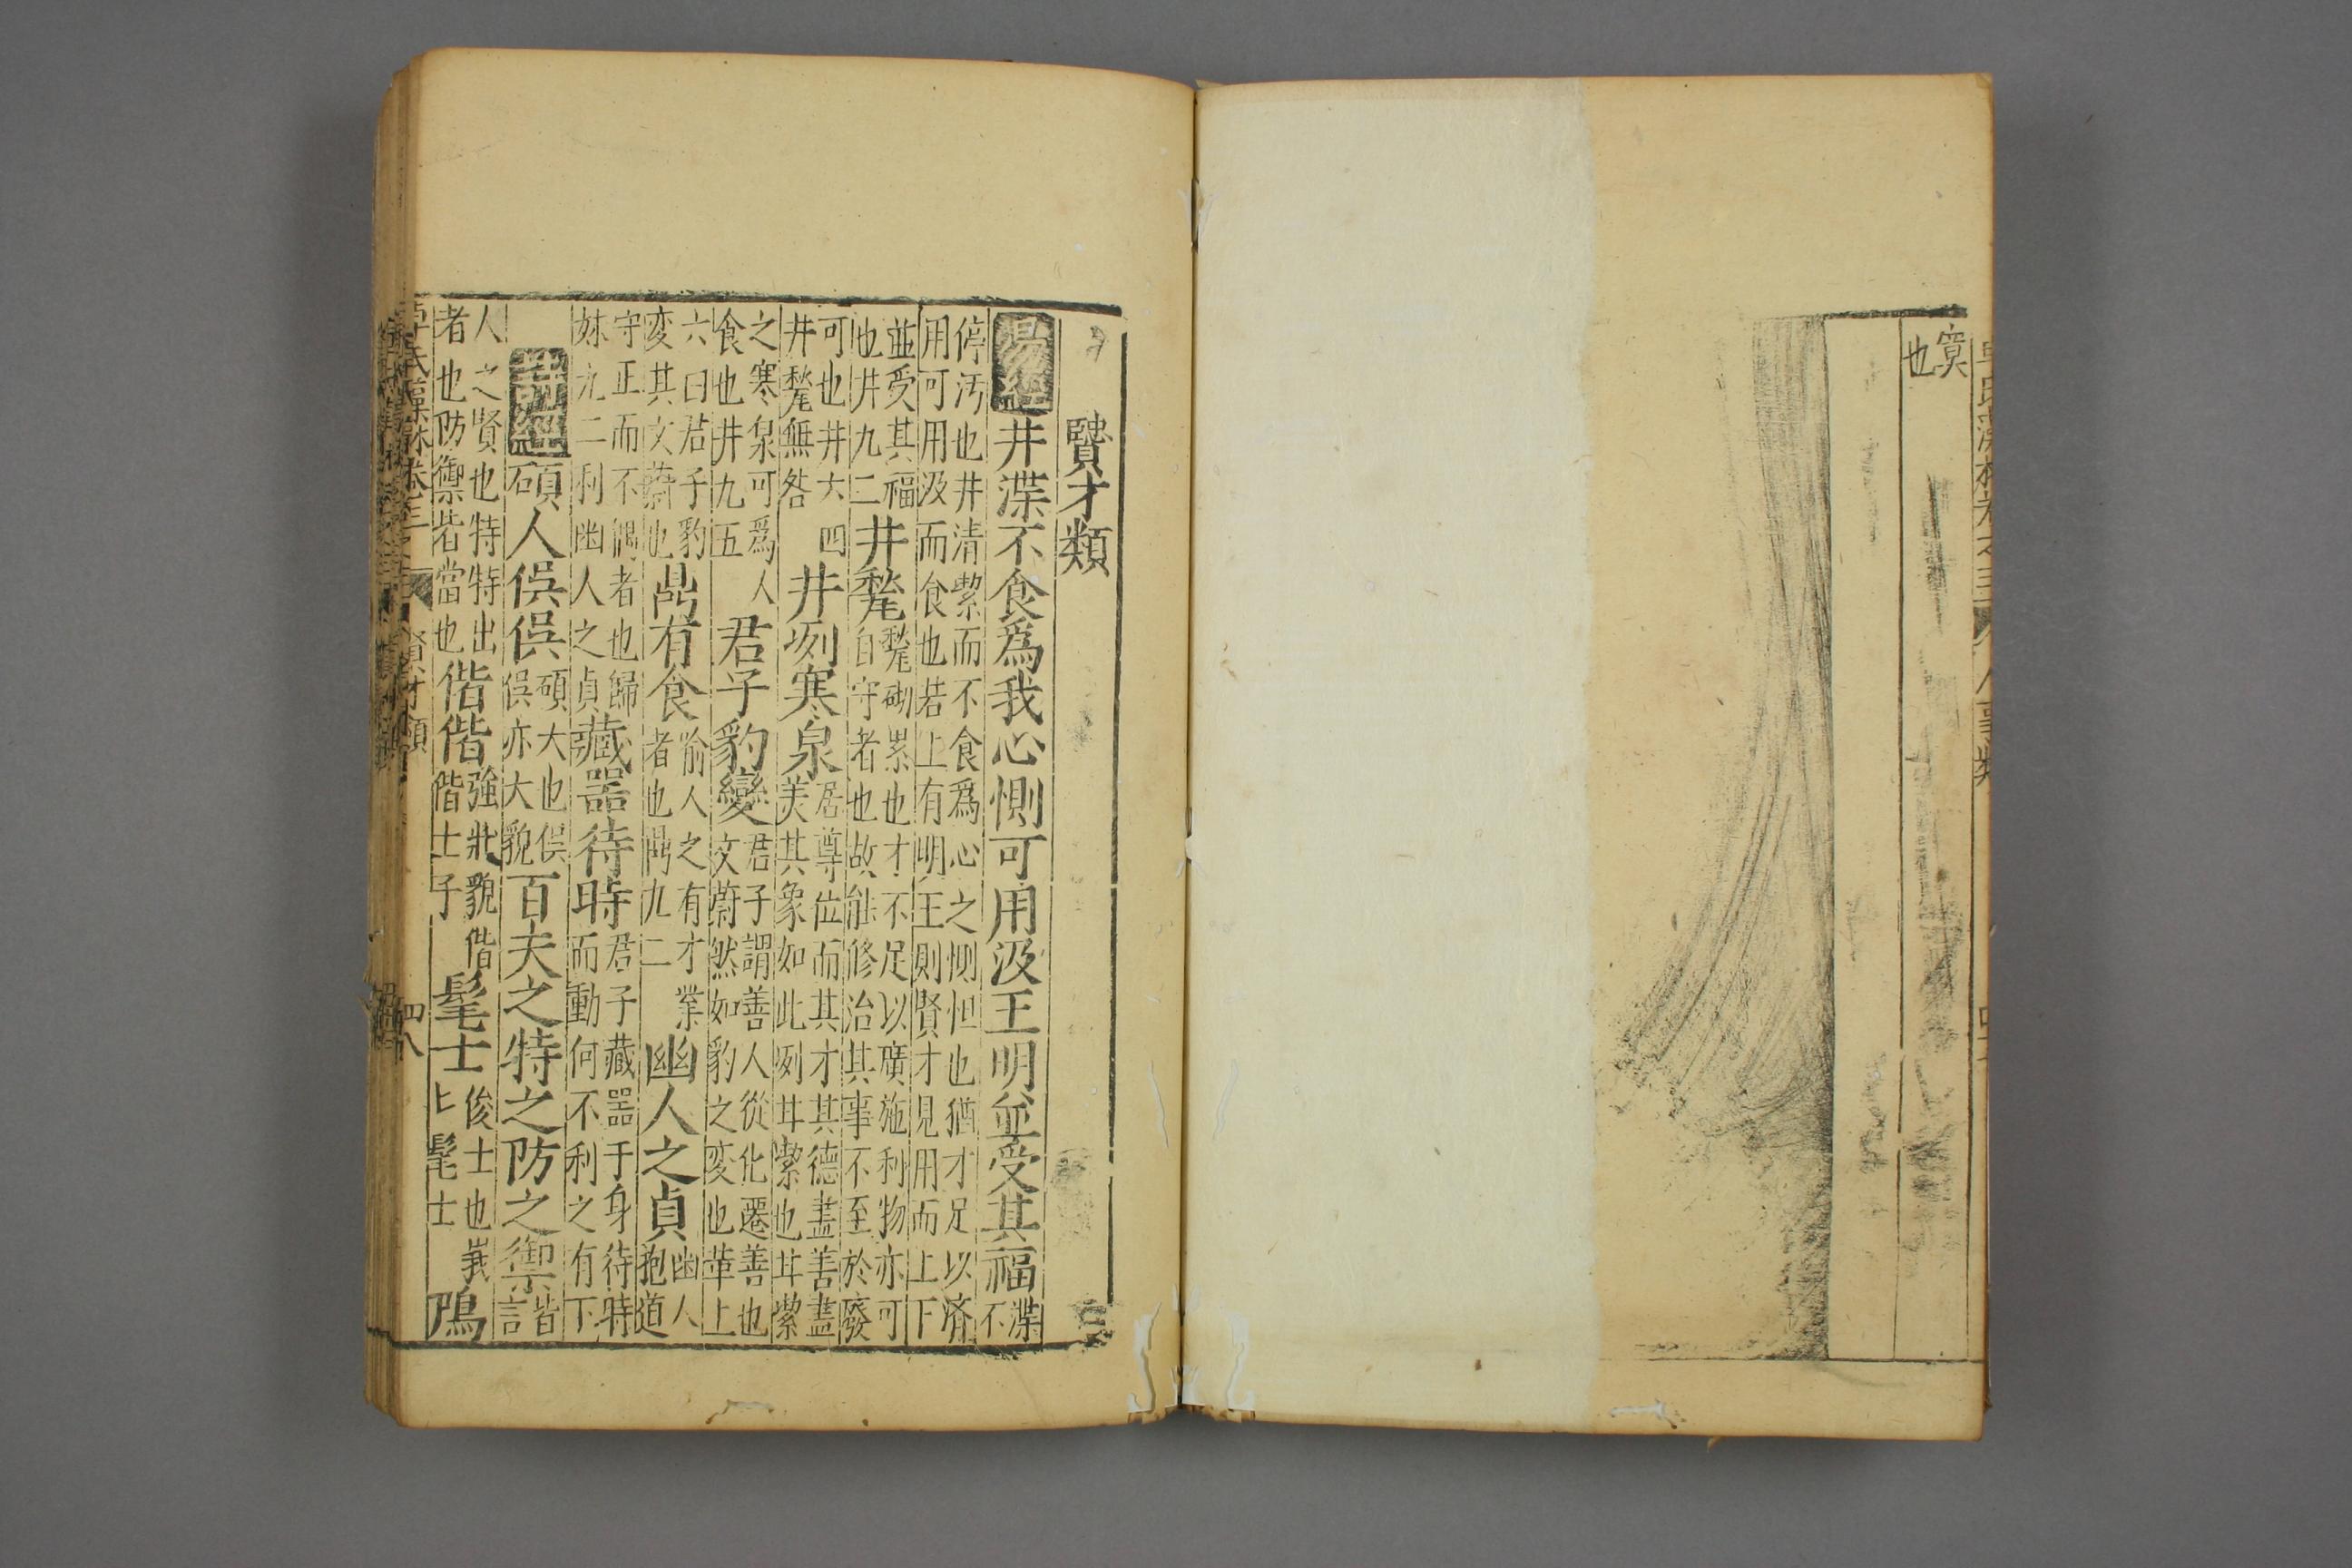 寞
也
卓氏藻林卷之三 人事類
賢才類
易經 井渫不食爲我心惻可用汲王明並受其福 渫不
停汚也井清潔而不食爲心之惻怛也猶才足以濟
用可用汲而食也若上有明王則賢才見用而上下
並受其福也井九二 井甃 甃砌累也才不足以廣施利物亦可自守者也故能修治其事不至於廢
可也井六四井甃無咎 井冽寒泉 居尊位而其才其德盡善盡美其象如此冽甘潔也甘潔
之寒泉可爲人食也井九五 君子豹變 君子謂善人從化遷善也文蔚然如豹之変也革上
六曰君子豹変其文蔚也 鼎有食 喻人之有才業者也鼎九二 幽人之貞 幽人抱道
守正而不偶者也歸妹九二利幽人之貞 藏器待時 君子藏器于身待時而動何不利之有下
詩經 碩人俁俁 碩大也俁俁亦大貌 百夫之特之防之禦 皆言
人之賢也特特出者也防禦皆當也 偕偕 強壯貌偕偕士子 髦士 俊士也峩〻髦士
卓氏藻林卷三 賢才類 四八